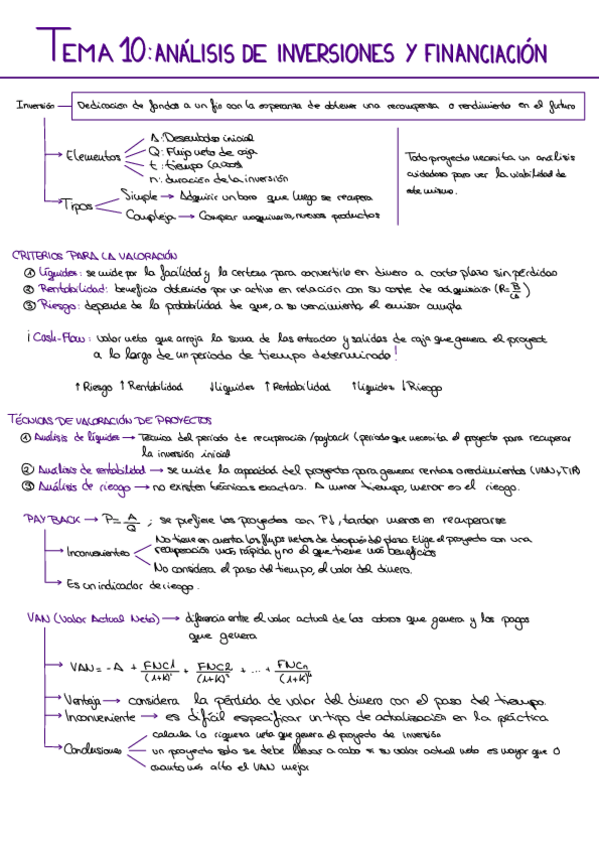 TEMA 10: ANÁLISIS DE INVERSIONES Y FINANCIACIÓN
Inversión → Dedicación de fondos a un fin con la esperanza de obtener una recompensa o rendimiento en el futuro
Elementos
A: Desembolso inicial
Q: Flujo neto de caja
t: tiempo (años)
n: duración de la inversión
Tipos
Simple → Adquirir un bono que luego se recupera
Compleja → Comprar maquinaria, nuevos productos
Todo proyecto necesita un análisis
cuidadoso para ver la viabilidad de
este mismo.
CRITERIOS PARA LA VALORACIÓN
① Liquidez: se mide por la facilidad y la certeza para convertirlo en dinero a corto plazo sin pérdidas
② Rentabilidad: beneficio obtenido por un activo en relación con su coste de adquisición (R=
③ Riesgo: depende de la probabilidad de que, a su vencimiento el emisor cumpla
¡Cash-Flow: valor neto que arroja la suma de las entradas y salidas de caja que genera el proyect
a lo largo de un periodo de tiempo determinado!
↑Riesgo ↑Rentabilidad ↓liquidez ↑Rentabilidad ↑liquidez ↓Riesgo
TÉCNICAS DE VALORACIÓN DE PROYECTOS
① Análisis de liquidez → Técnica del periodo de recuperación/payback (periodo que necesita el proyecto para recuperar
la inversión inicial
② Análisis de rentabilidad → se mide la capacidad del proyecto para generar rentas o rendimientos (VAN, TIR)
③ Análisis de riesgo → no existen técnicas exactas. A menor tiempo, menor es el riesgo.
PAYBACK → P= A/Q ; se prefiere los proyectos con P↓, tardan menos en recuperarse
Inconvenientes
No tiene en cuenta los flujos netos de después del plazo. Elige el proyecto con una
recuperación más rápida y no el que tiene más beneficios
No considera el paso del tiempo, el valor del dinero.
Es un indicador de riesgo.
VAN (Valor Actual Neto) → diferencia entre el valor actual de los cobros que genera y los pagos
que genera
VAN = -A + FNC1/(1+K)¹ + FNC2/(1+K)² + ... + FNCn/(1+K)ⁿ
Ventaja → considera la pérdida de valor del dinero con el paso del tiempo.
Inconveniente → es difícil especificar un tipo de actualización en la práctica
Conclusiones
calcula la riqueza neta que genera el proyecto de inversión
un proyecto solo se debe llevar a cabo si su valor actual neto es mayor que 0
cuanto más alto el VAN mejor